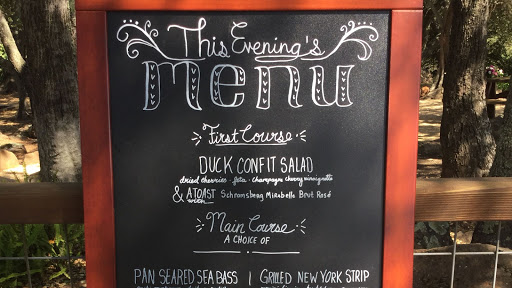 This Evening's
menu
First Course
DUCK CONFIT SALAD
dried cherries · feta · champagne cherry vinaigrette
& A TOAST with Schramsberg Mirabelle Brut Rosé
Main Course
A CHOICE OF
PAN SEARED SEA BASS | GRILLED NEW YORK STRIP